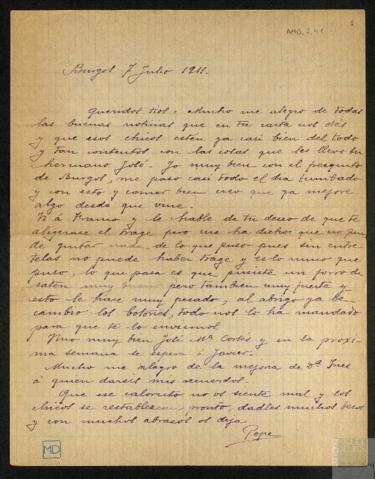 AMB, 2.41
1
Burgos 7 Julio 1911.
Queridos tios: Mucho me alegro de todas
las buenas noticias que en tu carta nos das
y que esos chicos estén ya casi bien del todo
y tan contentos con las cosas que les llevó tu
hermano José. Yo muy bien con el fresquito
de Burgos, me paso casi todo el dia tumbado
y con esto y comer bien creo que ya mejoré
algo desde que vine.
Vi á y le hablé de tu deseo de que te
aligerase el trage pero me ha dicho que no puede
de quitar nada de lo que puso pues sin entre
telas no puede haber trage y es lo unico que
puso, lo que pasa es que pusiste un forro de
satén muy bueno pero tambien muy fuerte y
esto le hace muy pesado, al abrigo ya le
cambió los botones, todo nos lo ha mandado
para que te lo enviemos.
Vino muy bien José Mª Cortés y en la próxi
ma semana se espera á Javier.
Mucho me alegro de la mejora de Dª Ines
á quien dareis mis recuerdos.
Que ese calorcito no os siente mal y los
chicos se restablezcan pronto, dadles muchos besos
y con muchos abrazos os deja
Pepe
MD